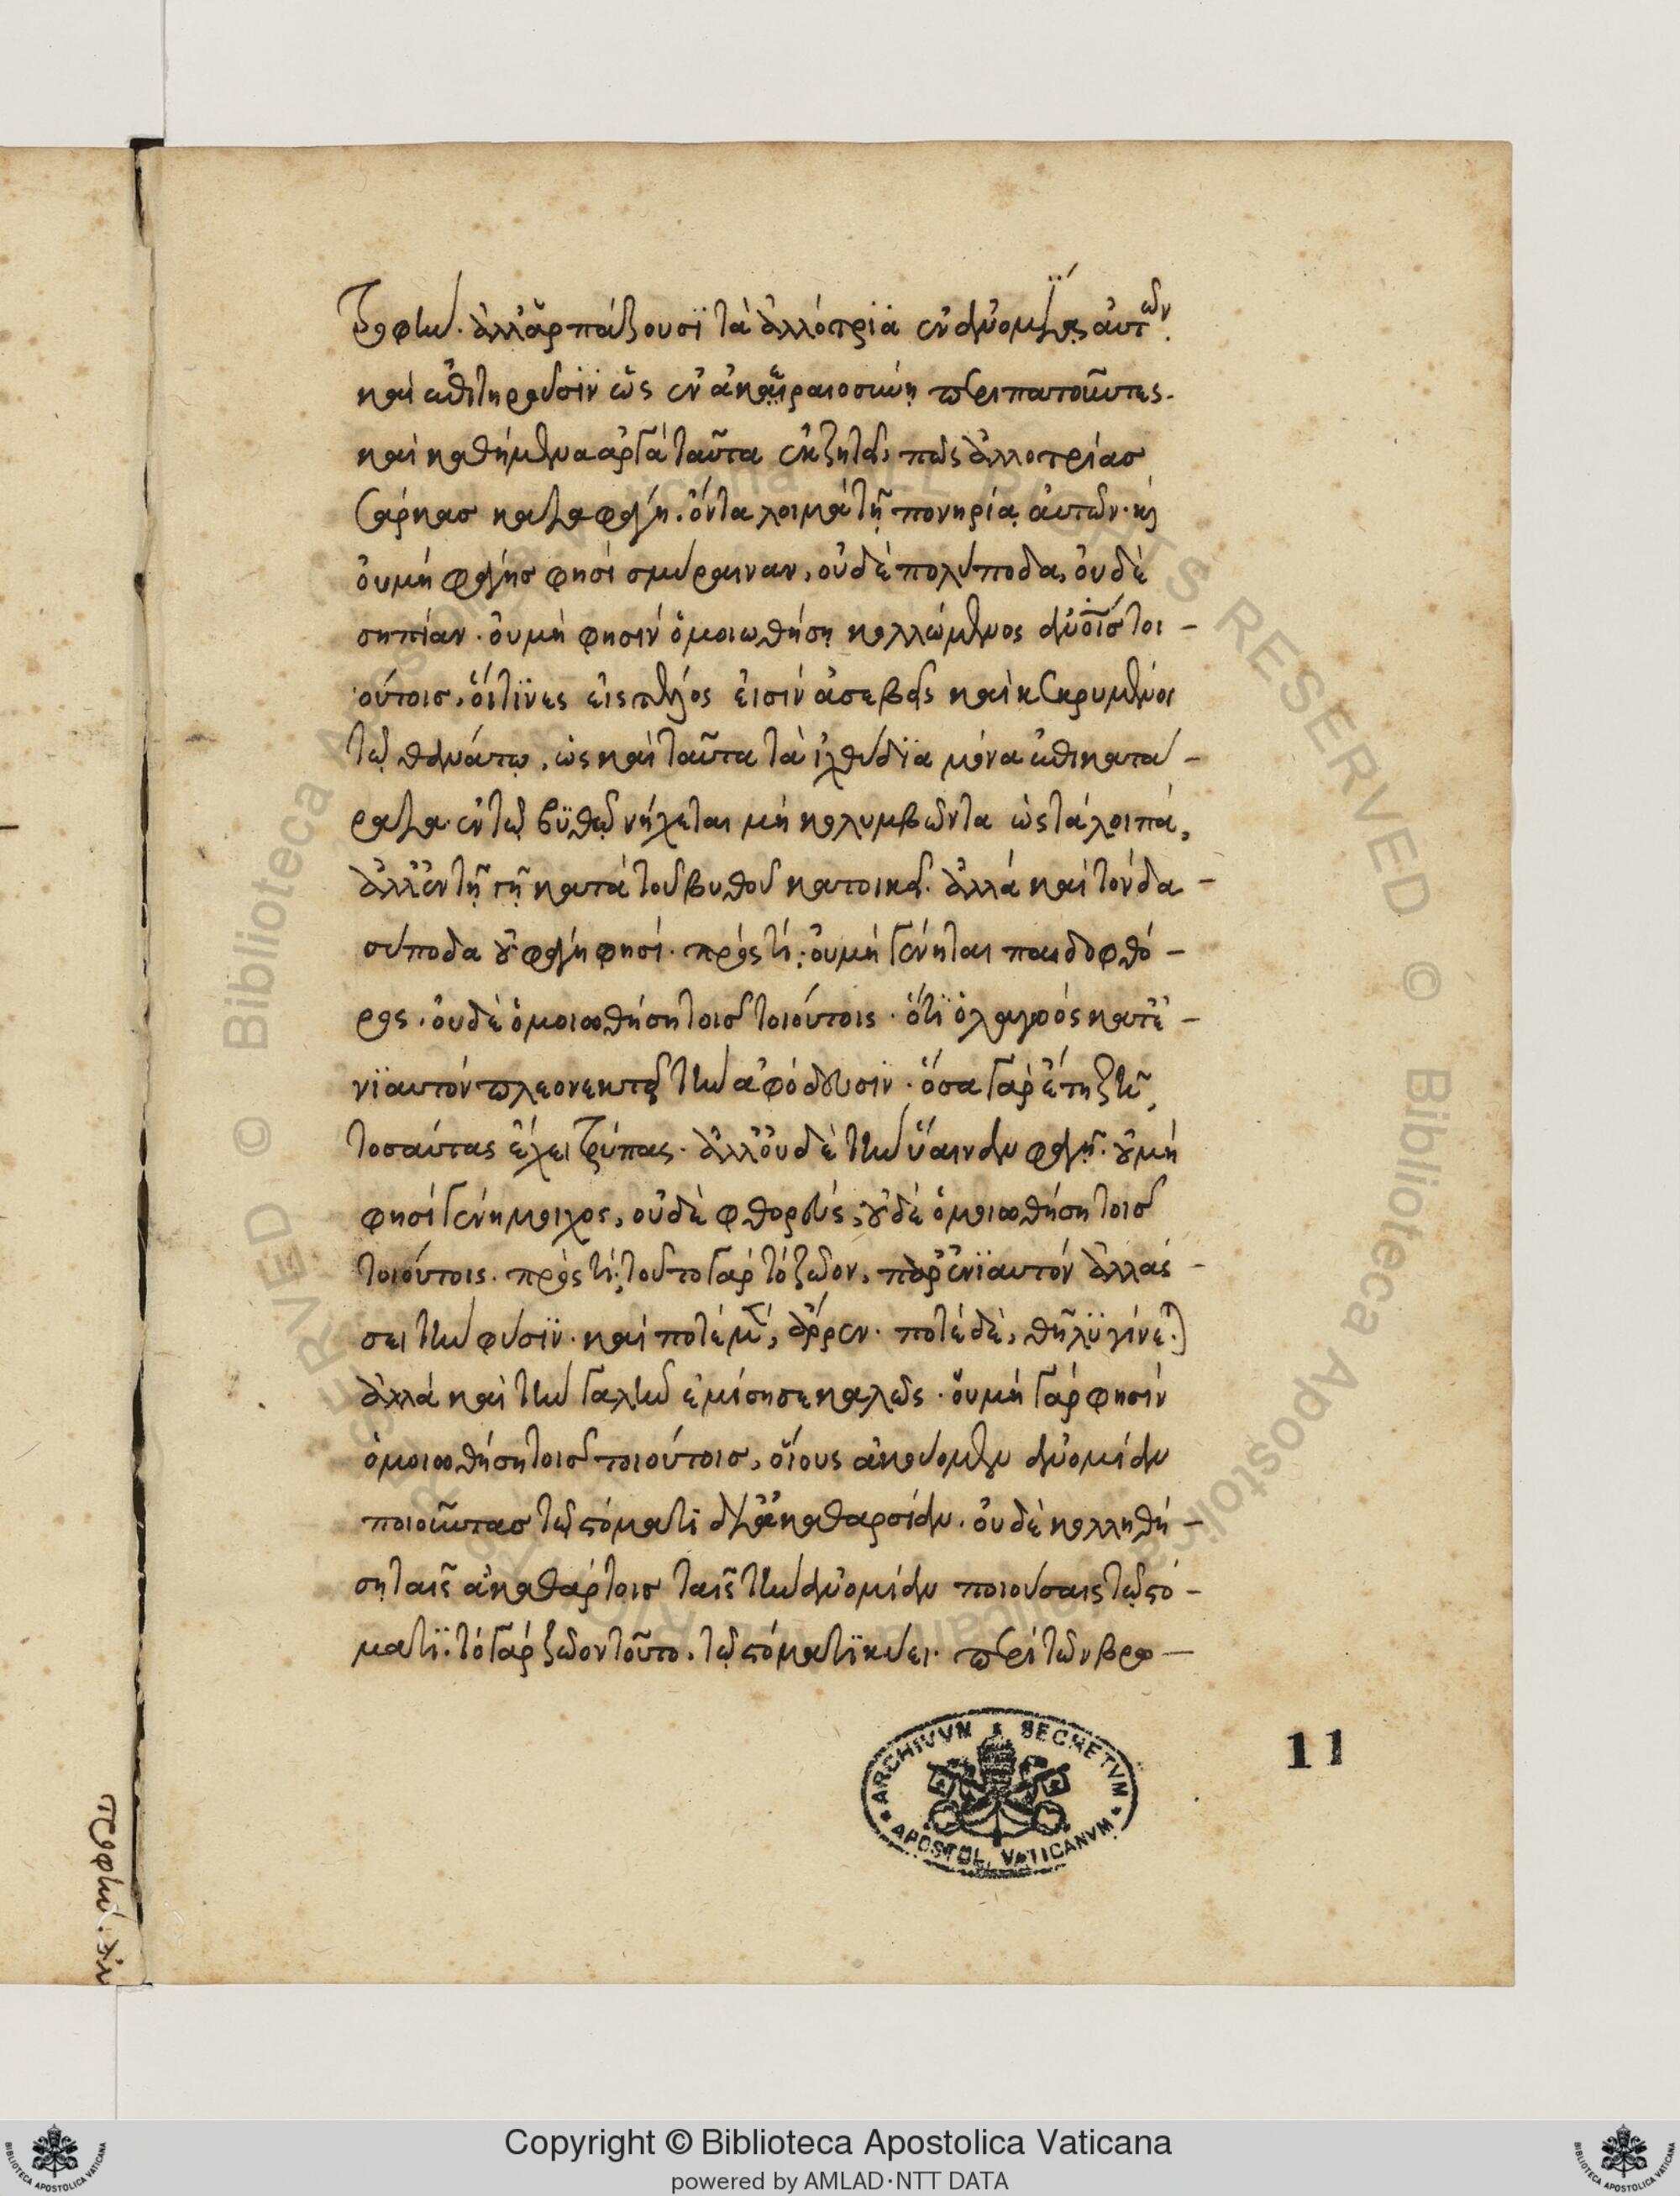 τροφὴν. ἀλλ' ἁρπάζουσϊ τὰ ἀλλότρϊα ἐν ἀνομίᾳ αὐτῶν.
καὶ ἐπιτηροῦσϊν ὡς ἐν ἀκεραιοσύνῃ περιπατοῦντες.
καὶ καθήμενα ἀργὰ ταῦτα ἐκζητεῖ, πῶς ἀλλοτρίας
σάρκας καταφάγῃ. ὄντα λοιμὰ τῇ πονηρίᾳ αὐτῶν. καὶ
οὐ μὴ φάγῃς φησὶ σμύραιναν, οὐδὲ πολύποδα, οὐδὲ
σηπίαν. οὐ μὴ φησὶν ὁμοιωθήσῃ κολλώμενος ἀνοῖς τοι-
ούτοις, οἵτϊνες εἰς τέλος εἰσὶν ἀσεβεῖς καὶ κεκρυμένοι
τῷ θανάτῳ, ὡς καὶ ταῦτα τὰ ἰχθύδϊα μόνα ἐπικατά-
ρατα ἐν τῷ βϋθῷ νήχεται μὴ κολυμβῶντα ὡς τὰ λοιπά,
ἀλλ' ἐν τῇ γῇ κατὰ τοῦ βυθοῦ κατοικεῖ. ἀλλὰ καὶ τὸν δα-
σύποδα οὐ φάγῃ φησί. πρὸς τί; οὐ μὴ γένηται παιδοφθό-
ρος. οὐδὲ ὁμοιωθήσῃ τοῖς τοιούτοις. ὅτϊ ὁ λαγωὸς κατ' ἐ-
νϊαυτὸν πλεονεκτεῖ τὴν ἀφόδευσϊν. ὅσα γὰρ ἔτη ζῇ,
τοσαύτας ἔχει τρύπας. ἀλλ' οὐδὲ τὴν ὕαιναν φάγῃ. οὐ μὴ
φησὶ γένῃ μοιχὸς, οὐδὲ φθορεὺς, οὐδὲ ὁμοιωθήσῃ τοῖς
τοιούτοις. πρὸς τί; τοῦτο γὰρ τὸ ζῶον, παρ' ἐνϊαυτὸν ἀλλάσ-
σει τὴν φύσϊν. καὶ ποτὲ μὲν, ἄρρεν. ποτὲ δὲ, θῆλϋ γίνεται.
ἀλλὰ καὶ τὴν γαλῆν ἐμίσησε καλῶς. οὐ μὴ γὰρ φησὶν
ὁμοιωθήσῃ τοῖς τοιούτοις, οἵους ἀκούομεν ἀνομίαν
ποιοῦντας τῷ στόματϊ δι' ἀκαθαρσίαν. οὐδὲ κολληθή-
σῃ ταῖς ἀκαθάρτοις ταῖς τὴν ἀνομίαν ποιούσαις τῷ στό-
ματϊ. τὸ γὰρ ζῶον τοῦτο. τῷ στόματϊ κύει. περὶ τῶν βρω-
ARCHIVVM SECRETVM
APOSTOL. VATICANVM
11
τροφὴν. ἀλλ
© Biblioteca Apostolica Vaticana ALL RIGHTS RESERVED
Copyright © Biblioteca Apostolica Vaticana
powered by AMLAD·NTT DATA